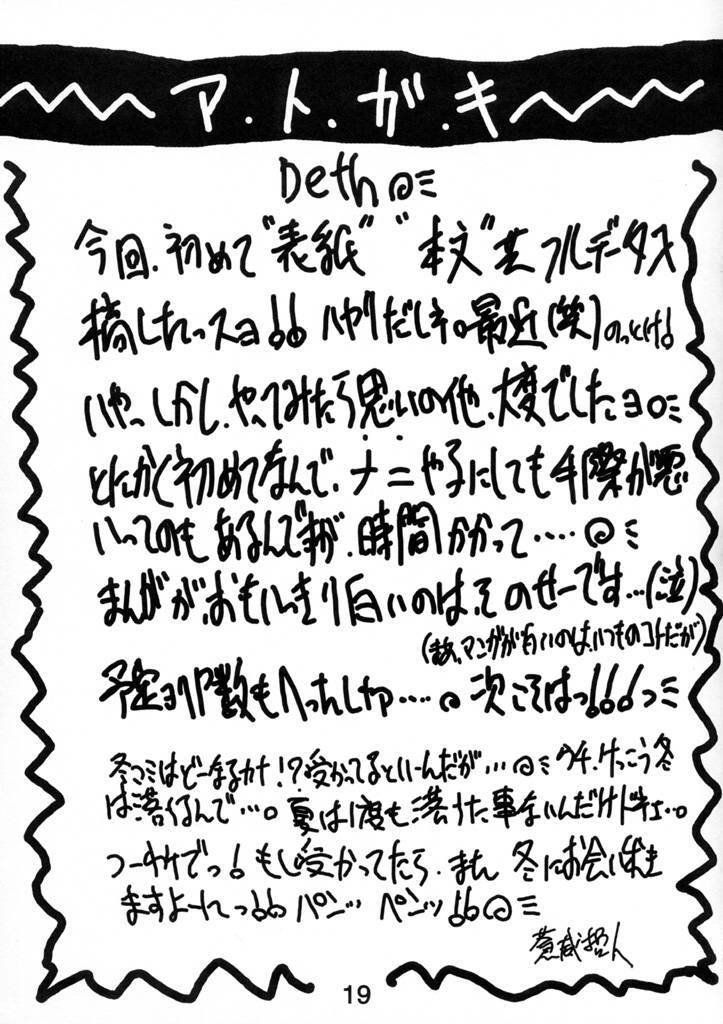 ア.ト.ガ.キ
Deth
今回、初めて"表紙" "本文"共フルデータ入
稿したっスョ!! ハヤリだしネ。最近(笑)のっとけ!
いやっしかし、やってみたら思いの他、大変でしたョ。
とにかく初めてなんで、ナニやるにしても手際が悪
いってのもあるんですが、時間かかって‥‥
まんがが、おもいっきり白いのは、そのせーです…(泣)
(まあ、マンガが白いのは、いつものコトだが)
予定よりP数もへっちゃしゃ‥‥。次こそはっ!!!っ
冬コミはどーなるカナ!?受かってるといーんだが…ウチ、けっこう冬
は落ちるんで…。夏は1度も落ちた事ないんだけドネェ…。
つーわけでっ!もし受かってたら、また冬にお会いしま
ますよーれっ!! パンッ ペンッ!!
蒼威哲人
19